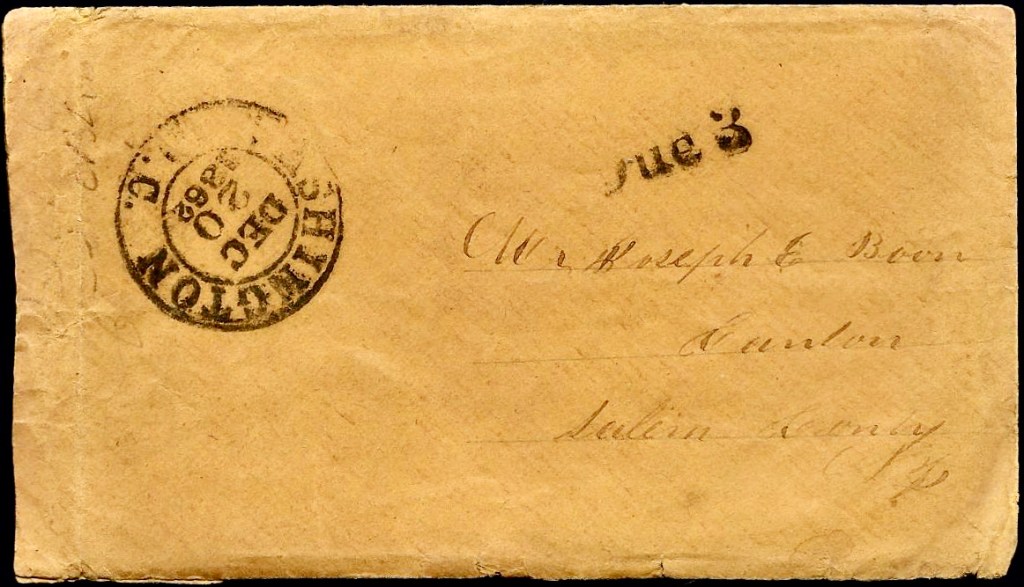 WASHINGTON D.C.
DEC
20
62
Due 3
Mr Joseph E Boon
Canton
Salem County